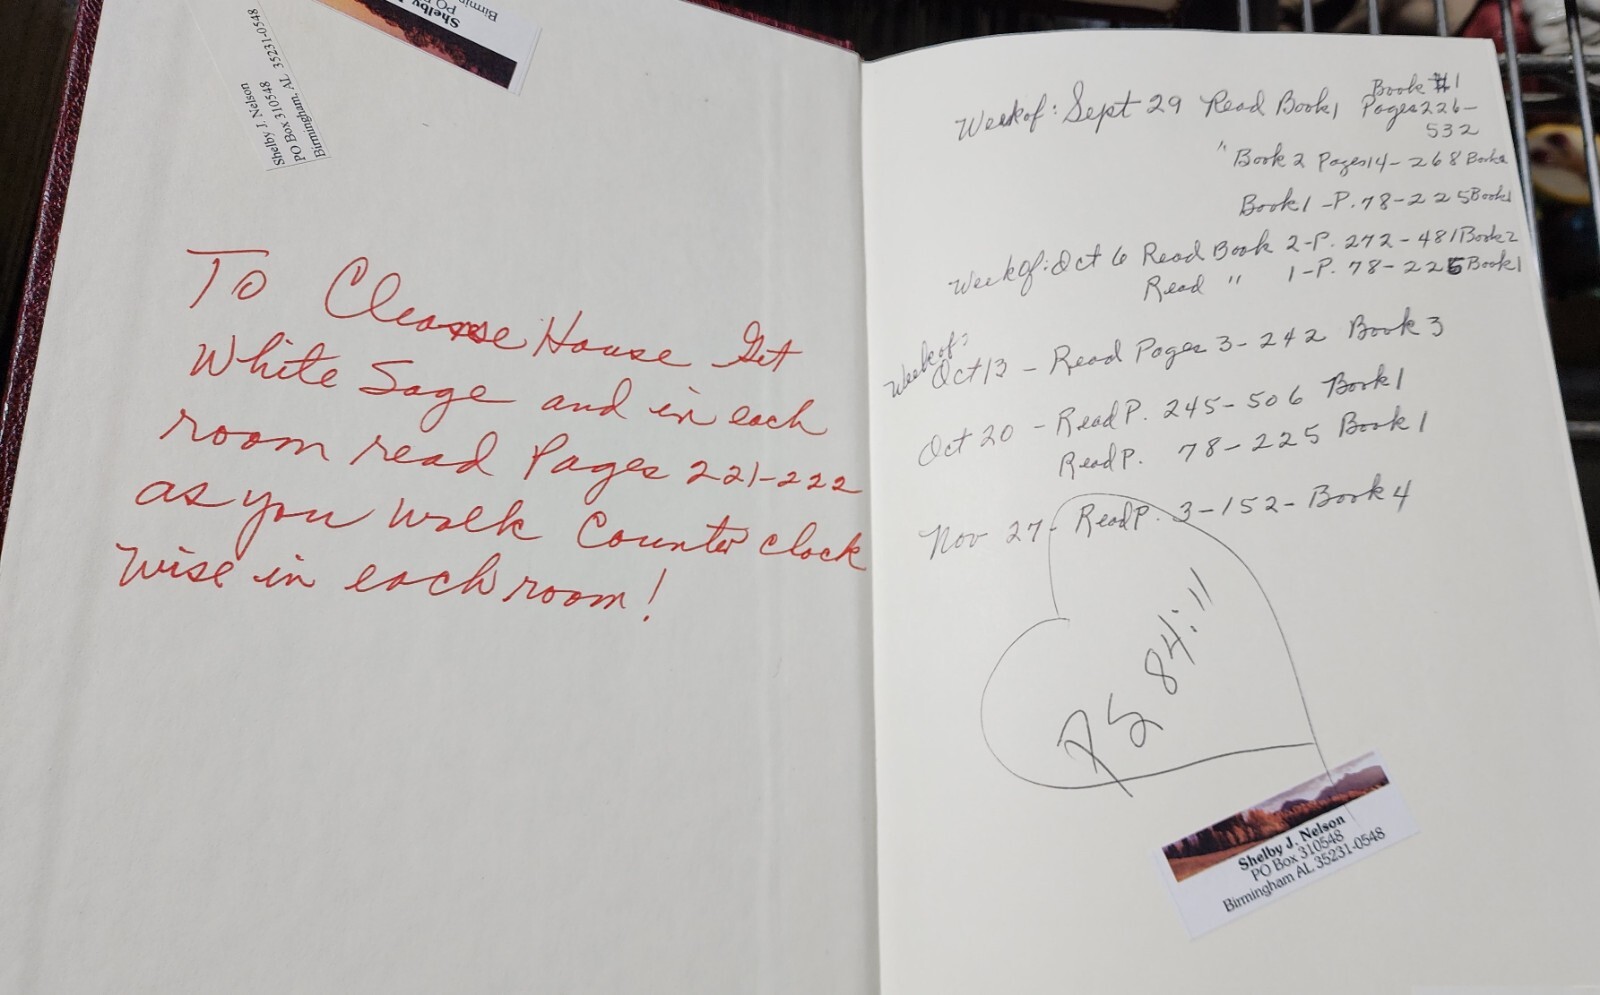 Shelby
Birmin
PO
Shelby J. Nelson
PO Box 310548
Birmingham, AL 35231-0548
To Cleanse House Get
White Sage and in each
room read Pages 221-222
as you walk Counter clock
wise in each room!
Week of: Sept 29 Read Book 1 Book #1
Pages 226-
532
" Book 2 Pages 14-268 Book
Book 1 -P. 78-225 Book 1
Week Of: Oct 6 Read Book 2-P. 272-481 Book 2
Read " 1-P. 78-225 Book 1
Week of:
Oct 13 - Read Pages 3-242 Book 3
Oct 20 - Read P. 245-506 Book 1
Read P. 78-225 Book 1
Nov 27- Read P. 3-152- Book 4
PS 84:11
Shelby J. Nelson
PO Box 310548
Birmingham AL 35231-0548